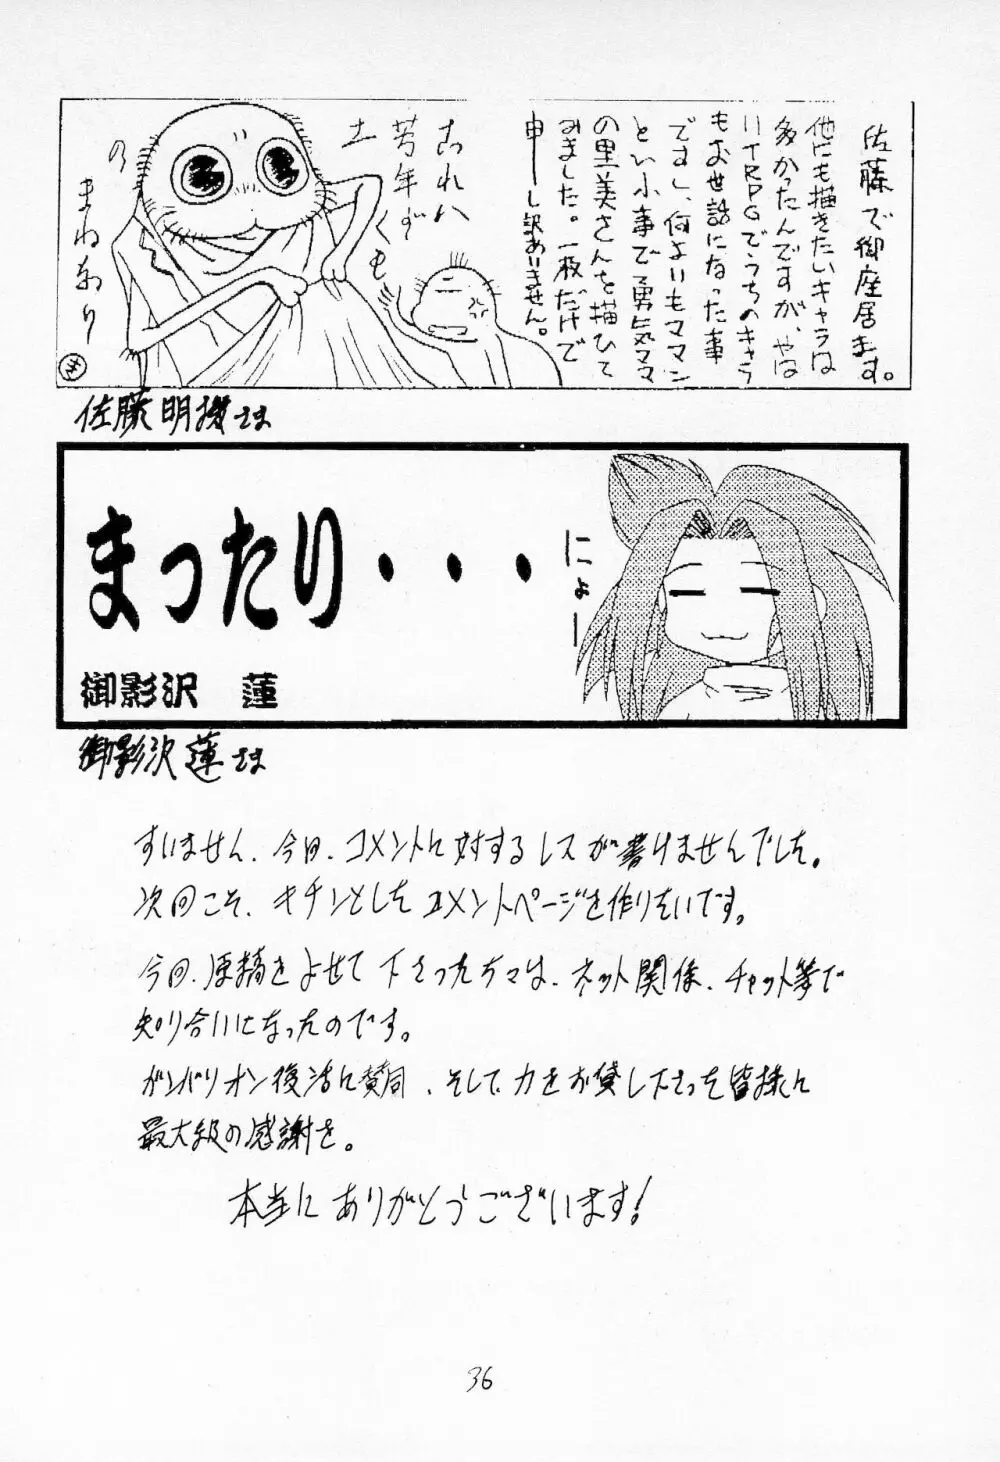 佐藤で御座居ます。
他にも描きたいキャラは
多かったんですが、やは
りTRPGでうちのキャラ
もお世話になった事
ですし、何よりもママン
という事で勇気ママ
の里美さんを描いて
みました。一枚だけで
申し訳ありません。
まねあり
の
佐藤明機さま
まったり・・・
にょー
御影沢 蓮
御影沢蓮さま
すいません、今回、コメントに対するレスが書けませんでした。
次回こそ、キチンとしたコメントページを作りたいです。
今回、原稿をよせて下さった方々は、ネット関係、チャット等で
知り合いになったのです。
ガンバリオン復活に賛同、そして力をお貸し下さった皆様に
最大級の感謝を。
本当にありがとうございます!
36